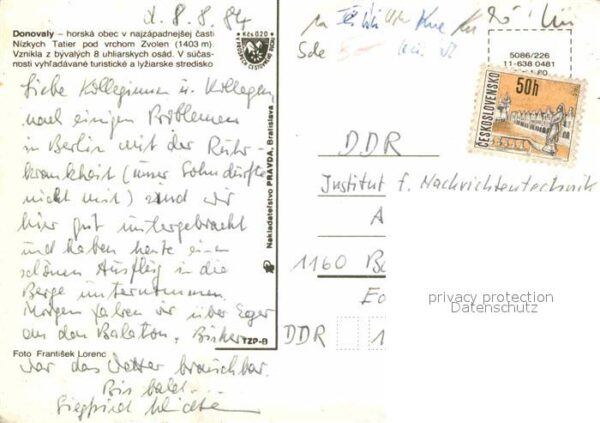 d. 8. 8. 84
Donovaly – horská obec v najzápadnejšej časti
Nízkych Tatier pod vrchom Zvolen (1403 m).
Vznikla z bývalých 8 uhliarskych osád. V súčas-
nosti vyhľadávané turistické a lyžiarske stredisko
Kčs 0,20
Liebe Kolleginnen u. Kollegen,
nach einigen Problemen
in Berlin mit der
krankheit (unser Sohn durfte
nicht mit) sind wir
hier gut untergebracht
und haben heute einen
schönen Ausflug in die
Berge unternommen.
Morgen fahren wir über Eger
an den Balaton. Bisher
war das Wetter brauchbar.
Bis bald...
Siegfried
Foto František Lorenc
Nakladateľstvo PRAVDA, Bratislava
TZP-B
5086/226
11-638 0481
ČESKOSLOVENSKO
50h
DDR
Institut f. Nachrichtentechnik
A
1160 Be
DDR 1
privacy protection
Datenschutz